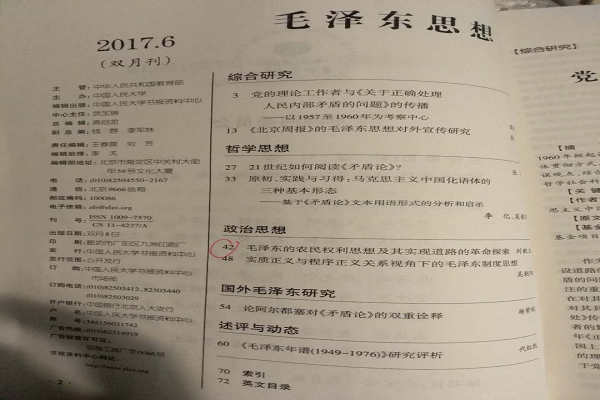 毛泽东思想
2017.6
(双月刊)
主 管：中华人民共和国教育部
主 办：中国人民大学
编辑出版：中国人民大学书报资料中心
中心主任：武宝瑞
总 编 辑：高自龙
副 总 编：钱蓉 李军林
责任编辑：王春磊 刘芳
编辑助理：李文
编辑部地址：北京市海淀区中关村大街
甲59号文化大厦
电 话：(010)82503550-2167
通 信：北京9666信箱
邮政编码：100086
ISSN 1009-7570
CN 11-4237/A
出版日期：双月8日
发 行：中国人民大学书报资料中心
发行范围：公开发行
订 购：中国人民大学书报资料中心
市场部
订购电话：(010)82503412、82503440
(010)82503029
开户银行：中国银行北京人大支行
户 名：中国人民大学书报资料中心
账 号：344156031742
· 2 ·
综合研究
3 党的理论工作者与《关于正确处理
人民内部矛盾的问题》的传播
——以1957至1960年为考察中心
13 《北京周报》的毛泽东思想对外宣传研究
哲学思想
27 21世纪如何阅读《矛盾论》?
33 原初、实践与习得：马克思主义中国化语体的
三种基本形态
——基于《矛盾论》文本用语形式的分析和启示
政治思想
42 毛泽东的农民权利思想及其实现道路的革命探索
48 实质正义与程序正义关系视角下的毛泽东制度思想
国外毛泽东研究
54 论阿尔都塞对《矛盾论》的双重诠释
述评与动态
60 《毛泽东年谱(1949-1976)》研究评析
70 索引
72 英文目录
[综合研究]
党